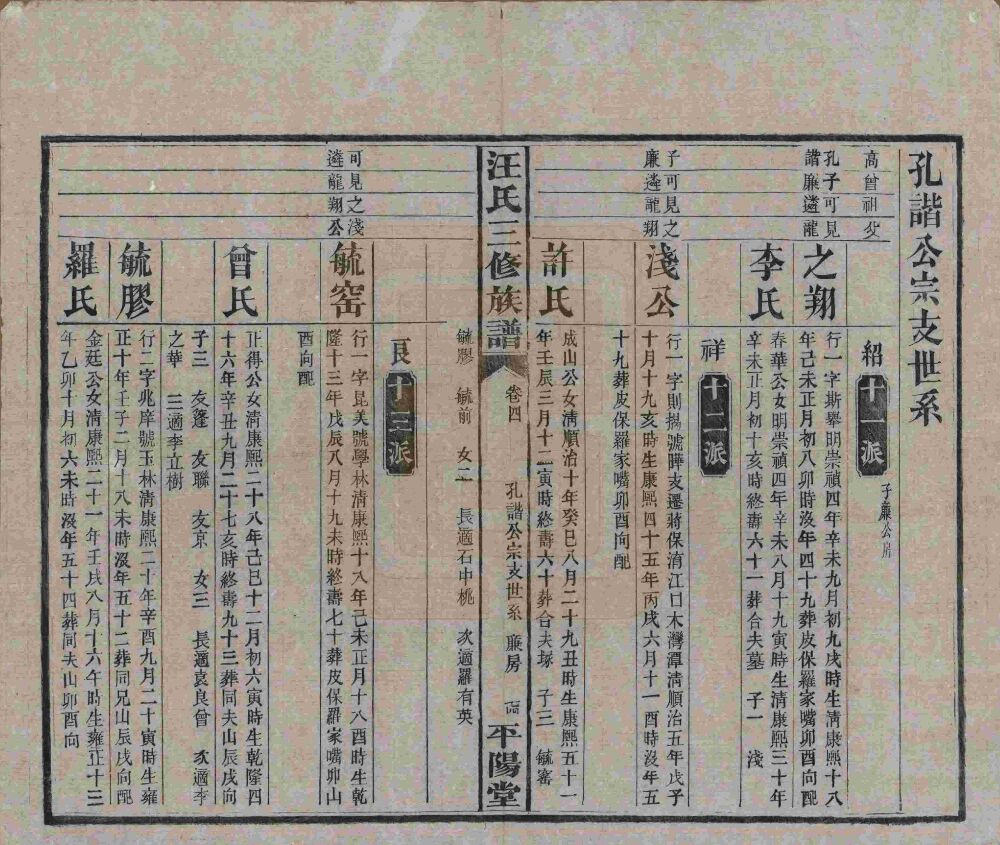 孔諧公宗支世系
高曾祖父
紹 十一派 子廉公房
孔子可見
諧廉遴龍
之翔
行一字斯舉明崇禎四年辛未九月初九戌時生清康熙十八
年己未正月初八卯時沒年四十九葬皮保羅家嘴卯酉向配
李氏
春華公女明崇禎四年辛未八月十九寅時生清康熙三十年
辛未正月初十亥時終壽六十一葬合夫墓 子一 淺
祥 十二派
子可見之
廉遴龍翔
淺公
行一字則揭號曄支遷蔣保淯江口木灣潭清順治五年戊子
十月十九亥時生康熙四十五年丙戌六月十一酉時沒年五
十九葬皮保羅家嘴卯酉向配
許氏
成山公女清順治十年癸巳八月二十九丑時生康熙五十一
年壬辰三月十二寅時終壽六十葬合夫塚 子三 毓窑
汪氏三修族譜 卷四 孔諧公宗支世系 廉房 平陽堂
毓膠 毓前 女二 長適石中桃 次適羅有英
長 十三派
可見之淺
遴龍翔公
毓窑
行一字昆美號學林清康熙十八年己未正月十八酉時生乾
隆十三年戊辰八月十九未時終壽七十葬皮保羅家嘴卯山
酉向配
曾氏
正得公女清康熙二十八年己巳十二月初六寅時生乾隆四
十六年辛丑九月二十七亥時終壽九十三葬同夫山辰戌向
子三 友蓬 友聯 友京 女三 長適袁良曾 次適李
之華 三適李立樹
毓膠
行二字兆庠號玉林清康熙二十年辛酉九月二十寅時生雍
正十年壬子二月十八未時沒年五十二葬同兄山辰戌向配
羅氏
金廷公女清康熙二十一年壬戌八月十六午時生雍正十三
年乙卯十月初六未時沒年五十四葬同夫山卯酉向